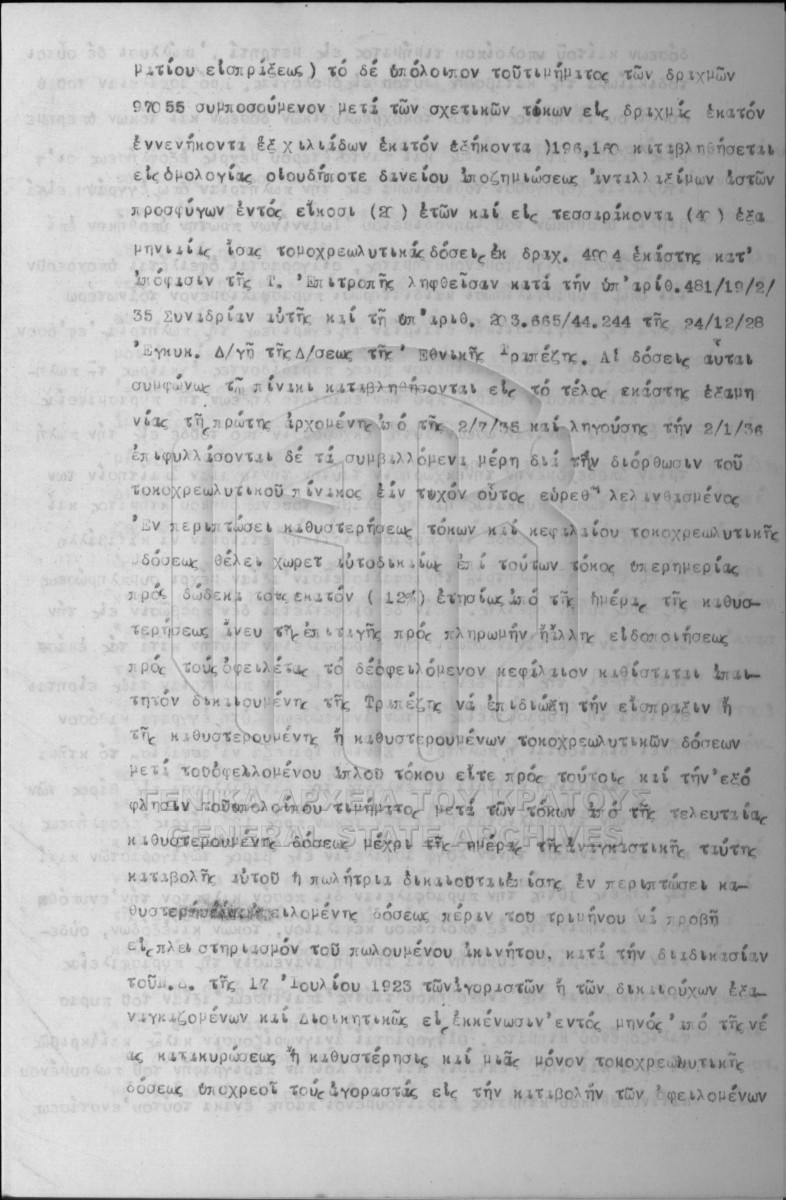 ματίου εἰσπράξεως) τό δέ ὑπόλοιπον τοῦτιμήματος τῶν δραχμῶν
97055 συμποσούμενον μετά τῶν σχετικῶν τόκων εἰς δραχμάς ἑκατόν
ἐννενήκοντα ἕξ χιλιάδων ἑκατόν ἑξήκοντα )196,160 καταβληθήσεται
εἰς ὁμολογίας οἱουδήποτε δανείου ἀποζημιώσεως ἀνταλλαξίμων ἀστῶν
προσφύγων ἐντός εἴκοσι (20) ἐτῶν καί εἰς τεσσαράκοντα (40) ἑξα
μηνιαίας ἴσας τομοχρεωλυτικάς δόσεις ἐκ δραχ. 4904 ἑκάστης κατ'
ἀπόφασιν τῆς Τ. Ἐπιτροπῆς ληφθεῖσαν κατά τήν ὑπ'ἀριθ.481/19/2/
35 Συνεδρίαν αὐτῆς καί τῇ ὑπ'ἀριθ. 203.665/44.244 τῆς 24/12/28
Ἐγκυκ. Δ/γῇ τῆς Δ/σεως τῆς Ἐθνικῆς Τραπέζης. Αἱ δόσεις αὗται
συμφώνως τῷ πίνακι καταβληθήσονται εἰς τό τέλος ἑκάστης ἑξαμη
νίας τῆς πρώτης ἀρχομένης ἀπό τῆς 2/7/35 καί ληγούσης τήν 2/1/36
ἐπιφυλλάσονται δέ τά συμβαλλόμενα μέρη διά τήν διόρθωσιν τοῦ
τοκοχρεωλυτικοῦ πίνακος ἐάν τυχόν οὗτος εὑρεθῇ λελανθασμένος
Ἐν περιπτώσει καθυστερήσεως τόκων καί κεφαλαίου τοκοχρεωλυτικῆς
δόσεως θέλει χωρεῖ αὐτοδικαίως ἐπί τούτων τόκος ὑπερημερίας
πρός δώδεκα τοῖς ἑκατόν ( 12%) ἐτησίως ἀπό τῆς ἡμέρας τῆς καθυσ-
τερήσεως ἄνευ τῆς ἐπιταγῆς πρός πληρωμήν ἤ ἄλλης εἰδοποιήσεως
πρός τούς ὀφειλέτας τό δέ ὀφειλόμενον κεφάλαιον καθίσταται ἀπαι-
τητόν δικαιουμένης τῆς Τραπέζης νά ἐπιδιώξῃ τήν εἴσπραξιν ἤ
τῆς καθυστερουμένης ἤ καθυστερουμένων τοκοχρεωλυτικῶν δόσεων
μετά τοῦ ὀφελλομένου ἁπλοῦ τόκου εἴτε πρός τούτοις καί τήν ἐξό
φλησιν τοῦ ὑπολοίπου τιμήματος μετά τῶν τόκων ἀπό τῆς τελευταίας
καθυστερουμένης δόσεως μέχρι τῆς ἡμέρας τῆς ἀναγκαστικῆς ταύτης
καταβολῆς αὐτοῦ ἡ πωλήτρια δικαιοῦται ἐπίσης ἐν περιπτώσει κα-
θυστερήσεως ὀφειλομένης δόσεως πέραν τοῦ τριμήνου νά προβῇ
εἰς πλειστηριασμόν τοῦ πωλουμένου ἀκινήτου, κατά τήν διαδικασίαν
τοῦ Ν.Δ. τῆς 17 Ἰουλίου 1923 τῶν ἀγοραστῶν ἤ τῶν δικαιούχων ἐξα-
ναγκαζομένων καί Διοικητικῶς εἰς ἐκκένωσιν ἐντός μηνός ἀπό τῆς νέ
ας κατακυρώσεως ἤ καθυστέρησις καί μιᾶς μόνον τοκοχρεωλυτικῆς
δόσεως ὑποχρεοῖ τούς ἀγοραστάς εἰς τήν καταβολήν τῶν ὀφειλομένων
ΓΕΝΙΚΑ ΑΡΧΕΙΑ ΤΟΥ ΚΡΑΤΟΥΣ
GENERAL STATE ARCHIVES